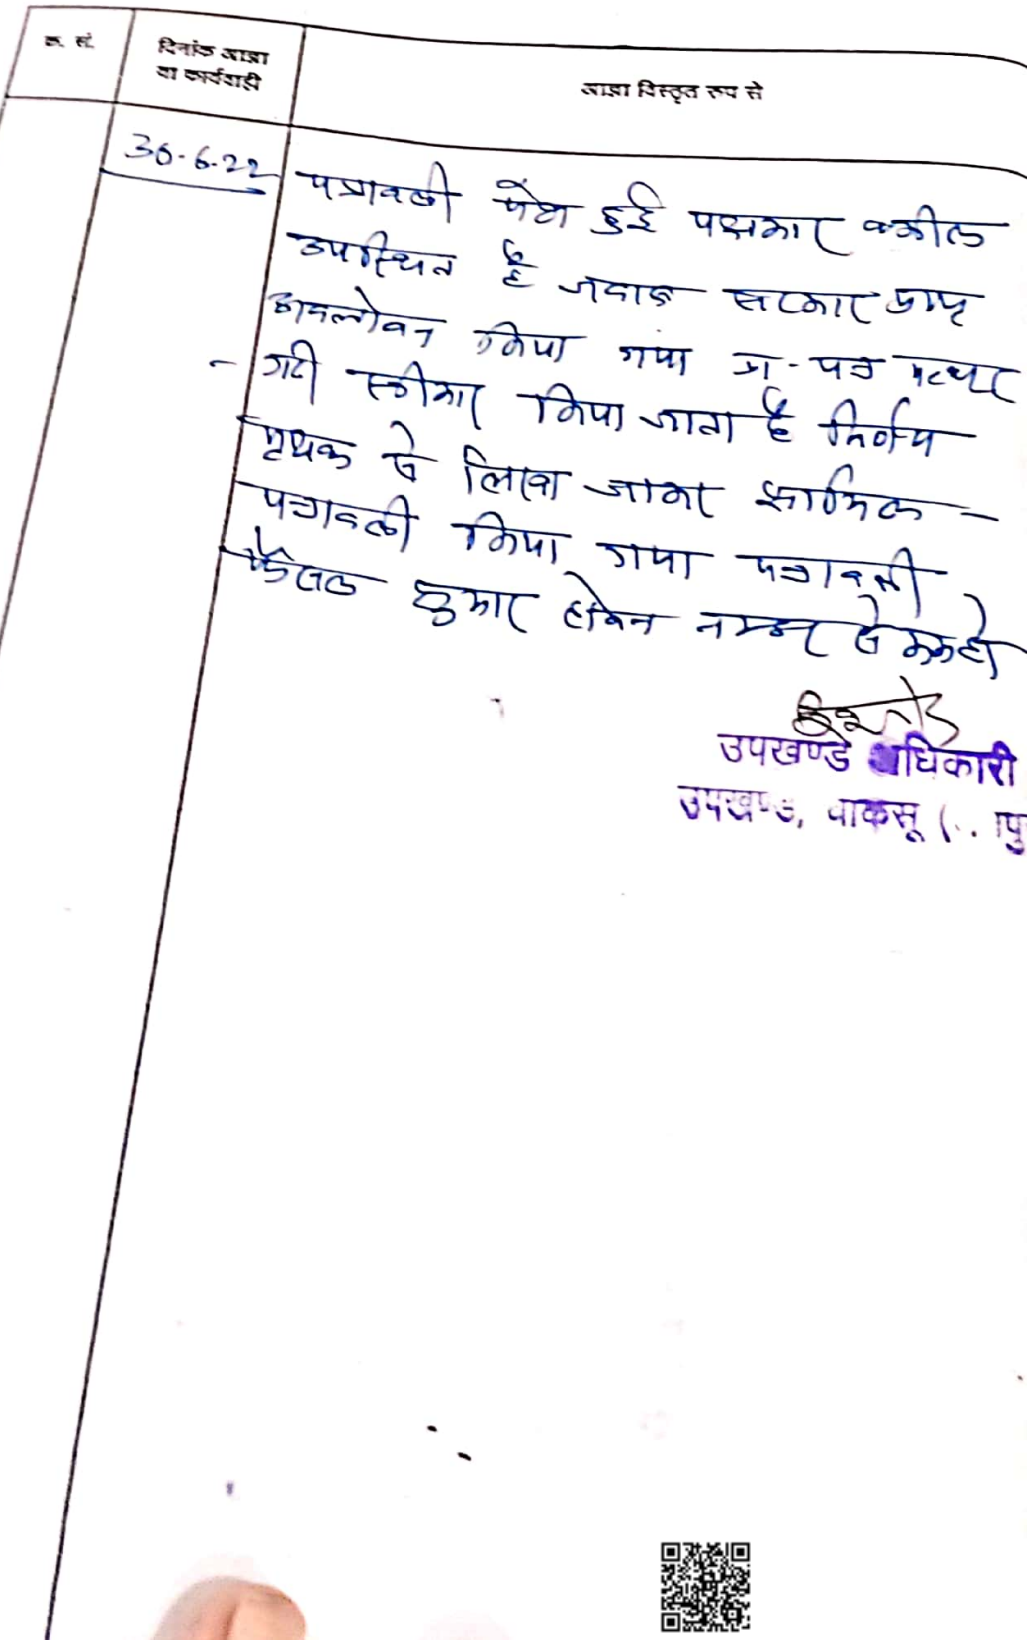 क्र. सं.
दिनांक आज्ञा
या कार्यवाही
आज्ञा विस्तृत रूप से
30-6-22
पत्रावली पेश हुई पक्षकार वकील
उपस्थित है जवाब सरकार प्राप्त
अवलोकन किया गया प्रा-पत्र पत्थर
- गढी स्वीकार किया जाता है निर्णय
पृथक से लिखा जाकर शामिल -
पत्रावली किया गया पत्रावली
फैसल शुमार होकर नम्बर से कम हो
उपखण्ड अधिकारी
उपखण्ड, चाकसू